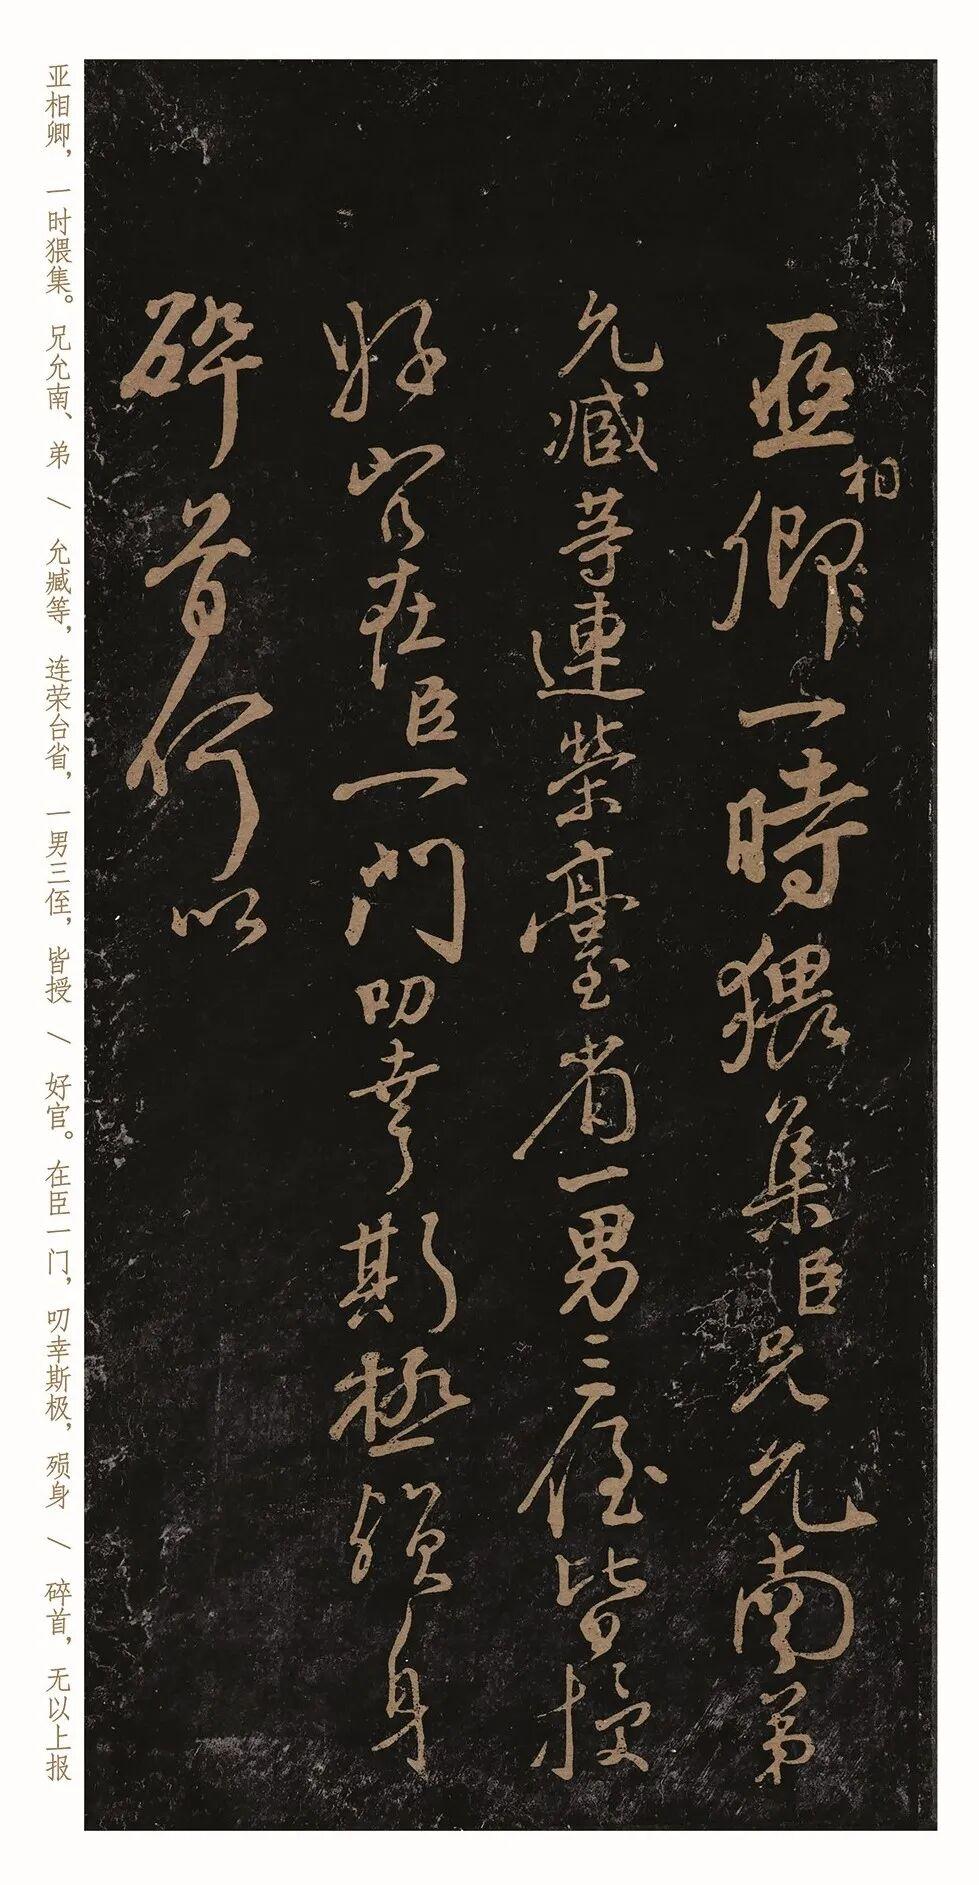 亞卿相一時猥集臣兄允南弟
允臧等連榮臺省一男三侄皆授
好官在臣一門叨幸斯極殞身
碎首何以
亚相卿，一时猥集。兄允南、弟 \ 允臧等，连荣台省，一男三侄，皆授 \ 好官。在臣一门，叨幸斯极，殒身 \ 碎首，无以上报